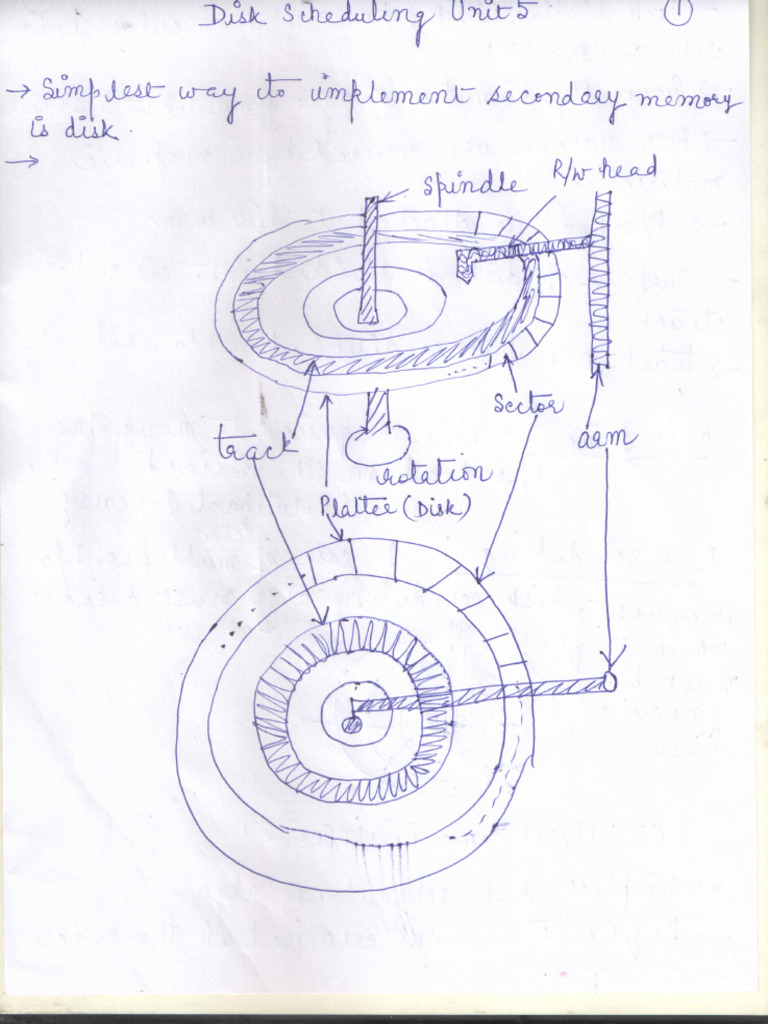 Disk Scheduling Unit 5 1
→ Simplest way to implement secondary memory
is disk.
→
Spindle
R/w head
Sector
arm
track
rotation
Platter (Disk)